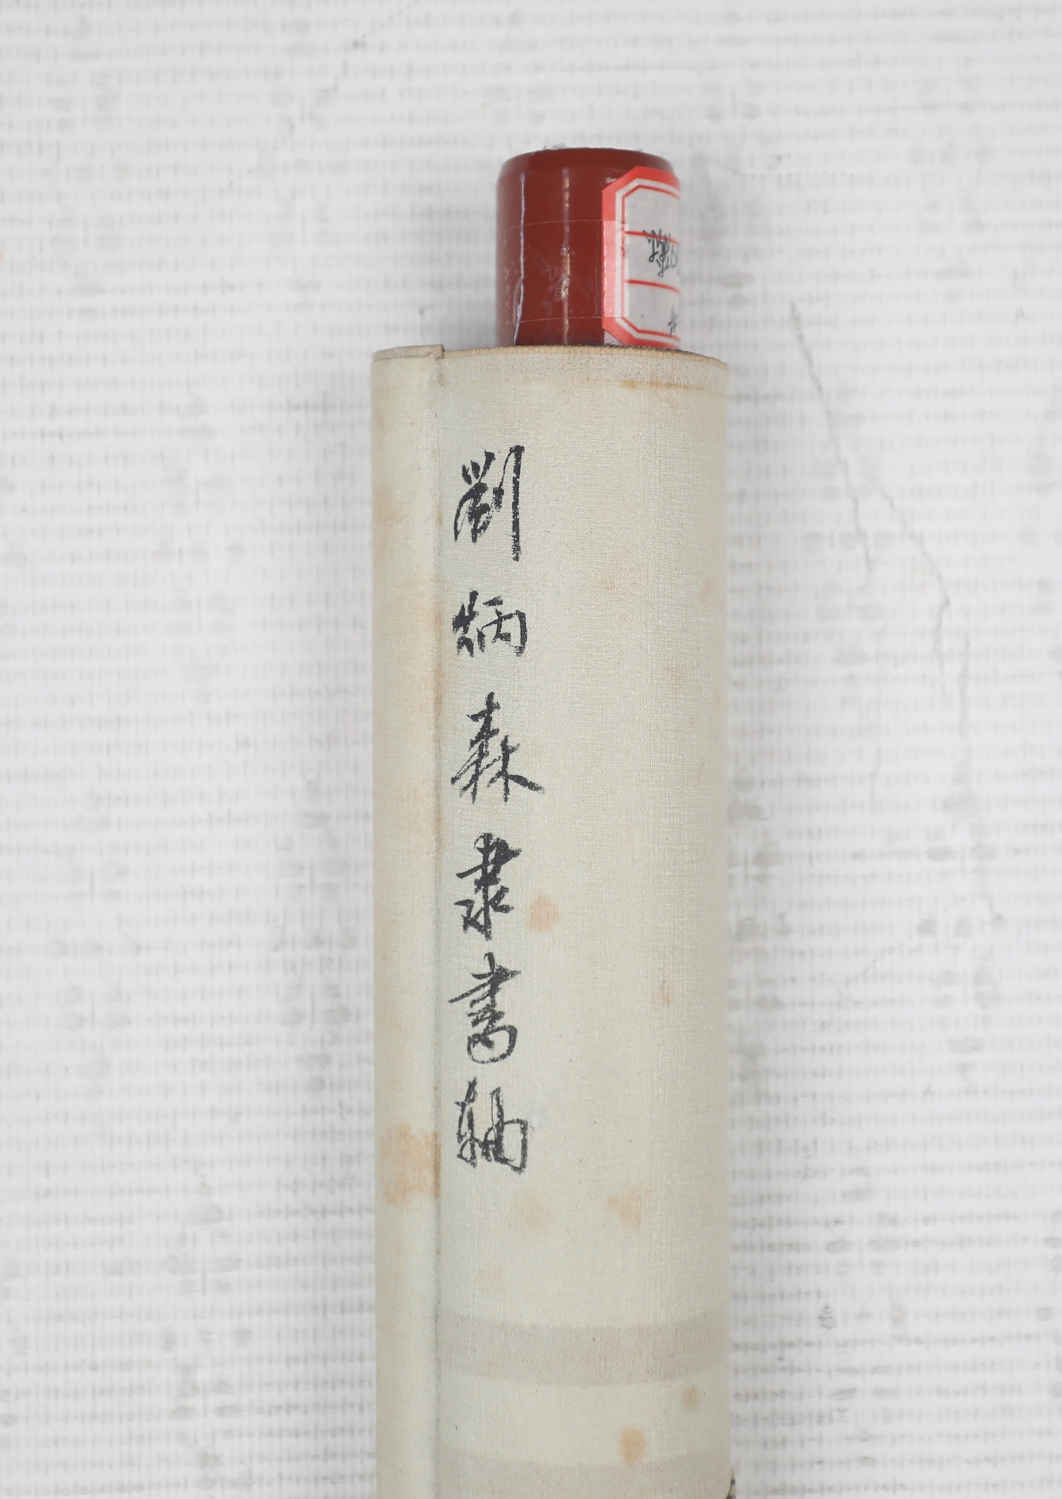 劉炳森隶書軸